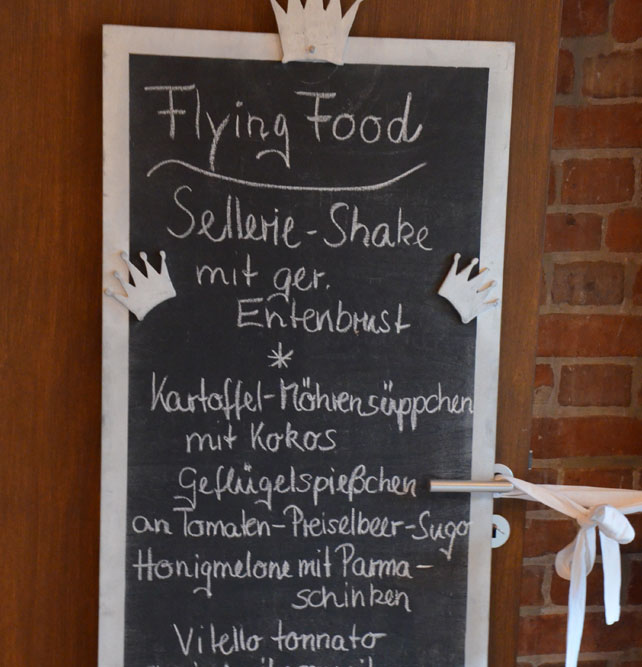 Flying Food
Sellerie-Shake
mit ger.
Entenbrust
*
Kartoffel-Möhrensüppchen
mit Kokos
Geflügelspießchen
an Tomaten-Preiselbeer-Sugo
Honigmelone mit Parma-
schinken
Vitello tonnato